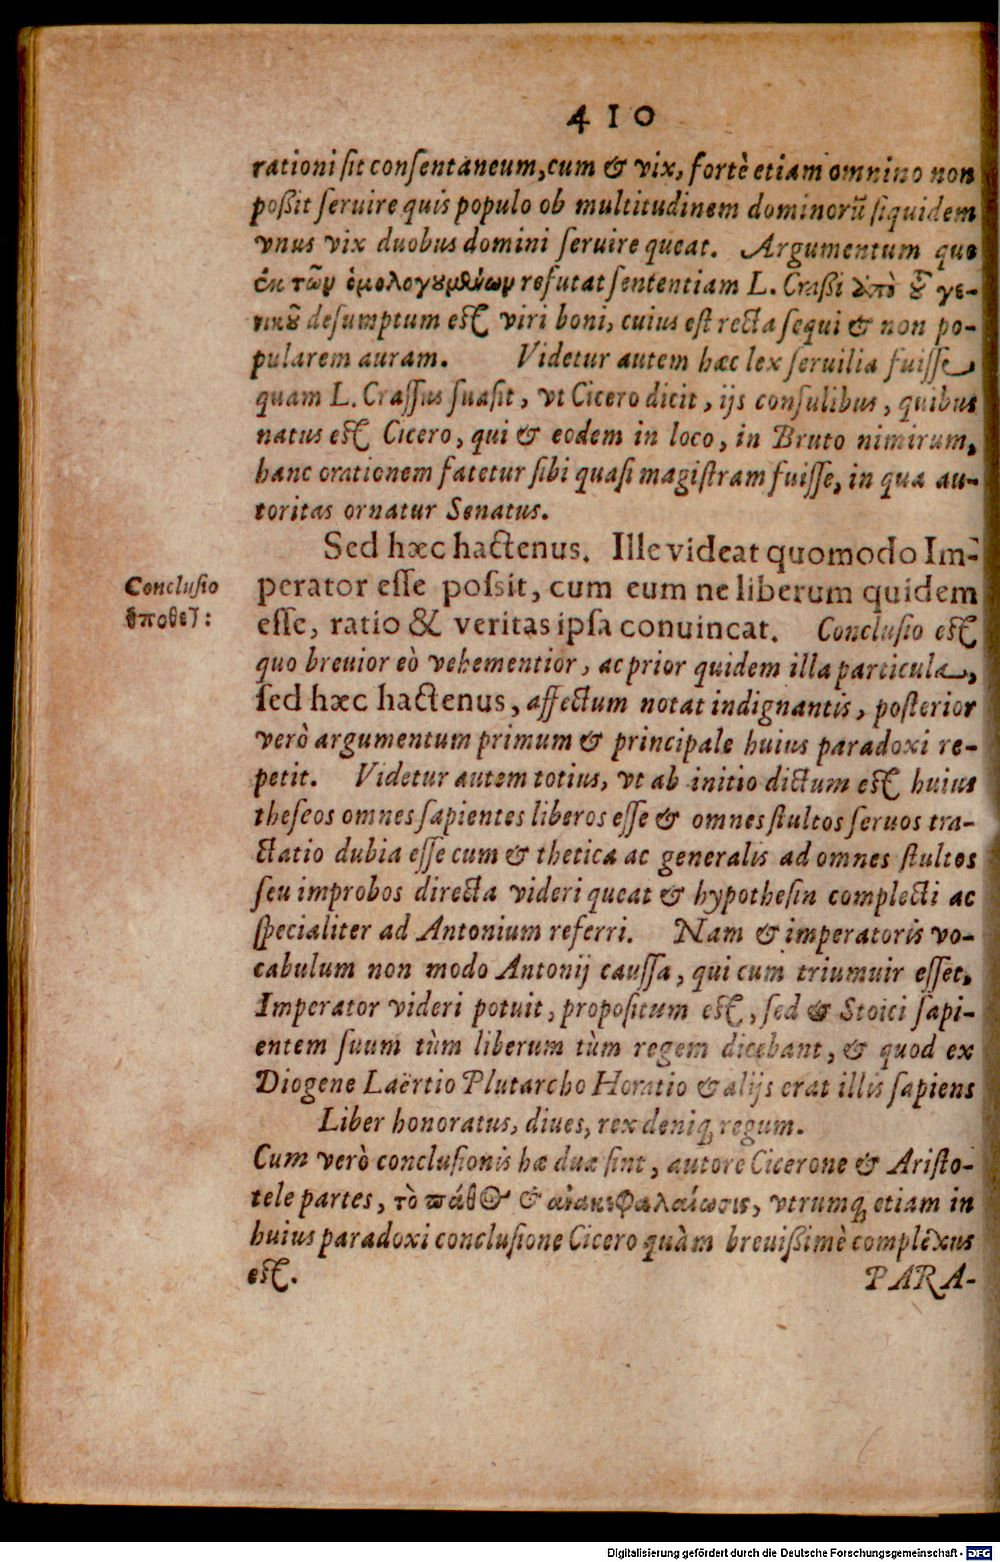 410
rationi sit consentaneum, cum & vix, fortè etiam omnino non
poßit seruire quis populo ob multitudinem dominorũ siquidem
vnus vix duobus domini seruire queat. Argumentum quo
ἐκ τῶν ὁμολογουμένων refutat sententiam L. Craßi ἀπὸ τοῦ γε-
νικοῦ desumptum est viri boni, cuius est recta sequi & non po-
pularem auram. Videtur autem hæc lex seruilia fuisse,
quam L. Crassus suasit, vt Cicero dicit, ijs consulibus, quibus
natus est Cicero, qui & eodem in loco, in Bruto nimirum,
hanc orationem fatetur sibi quasi magistram fuisse, in qua au-
toritas ornatur Senatus.
Sed hæc hactenus. Ille videat quomodo Im-
perator esse possit, cum eum ne liberum quidem
esse, ratio & veritas ipsa conuincat. Conclusio est
Conclusio
quo breuior eò vehementior, ac prior quidem illa particula,
sed hæc hactenus, affectum notat indignantis, posterior
verò argumentum primum & principale huius paradoxi re-
petit. Videtur autem totius, vt ab initio dictum est huius
theseos omnes sapientes liberos esse & omnes stultos seruos tra-
ctatio dubia esse cum & thetica ac generalis ad omnes stultos
seu improbos directa videri queat & hypothesin complecti ac
specialiter ad Antonium referri. Nam & imperatoris vo-
cabulum non modo Antonij caussa, qui cum triumuir esset,
Imperator videri potuit, propositum est, sed & Stoici sapi-
entem suum tùm liberum tùm regem dicebant, & quod ex
Diogene Laërtio Plutarcho Horatio & alijs erat illis sapiens
Liber honoratus, diues, rex deniq; regum.
Cum verò conclusionis hæ duæ sint, autore Cicerone & Aristo-
tele partes, τὸ πάθος & ἀνακεφαλαίωσις, vtrumq; etiam in
huius paradoxi conclusione Cicero quàm breuißimè complexus
est.
PARA-
Digitalisierung gefördert durch die Deutsche Forschungsgemeinschaft - DFG